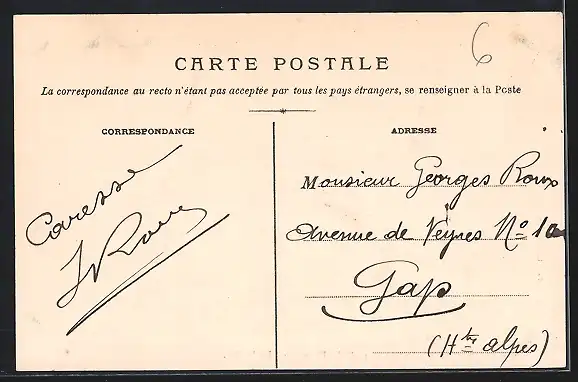 6
CARTE POSTALE
La correspondance au recto n'étant pas acceptée par tous les pays étrangers, se renseigner à la Poste
CORRESPONDANCE
Caresse
ADRESSE
Monsieur Georges Roux
Avenue de Veynes No
Gap
(Htes Alpes)